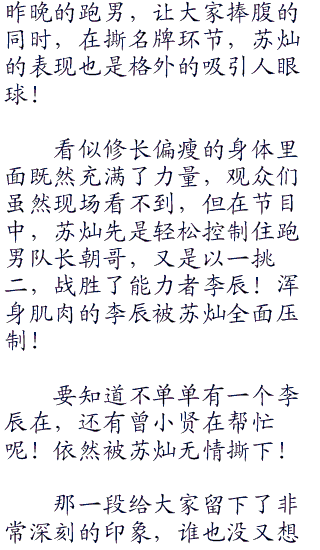 昨晚的跑男，让大家捧腹的
同时，在撕名牌环节，苏灿
的表现也是格外的吸引人眼
球！
看似修长偏瘦的身体里
面既然充满了力量，观众们
虽然现场看不到，但在节目
中，苏灿先是轻松控制住跑
男队长朝哥，又是以一挑
二，战胜了能力者李辰！浑
身肌肉的李辰被苏灿全面压
制！
要知道不单单有一个李
辰在，还有曾小贤在帮忙
呢！依然被苏灿无情撕下！
那一段给大家留下了非
常深刻的印象，谁也没又想